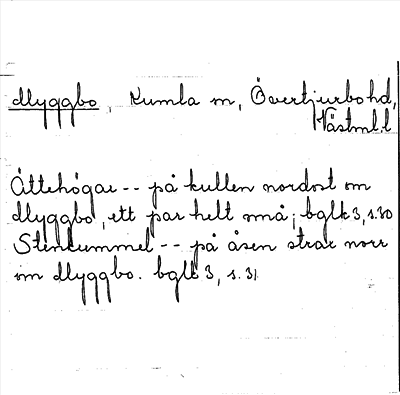 Myggbo, Kumla sn, Övertjurbo hd,
Västml. l
Ättehögar -- på kullen nordost om
Myggbo, ett par helt små; bglk 3, s. 30
Stenkummel -- på åsen strax norr
om Myggbo. bglk 3, s. 31